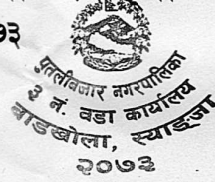 ७३
पुतलीबजार नगरपालिका
३ नं. वडा कार्यालय
बाडखोला, स्याङ्जा
२०७३